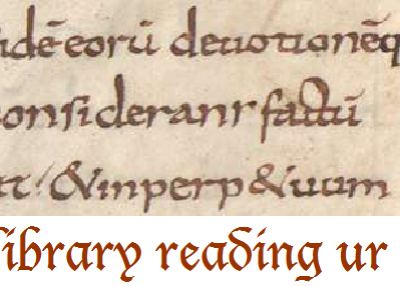 idē eorū deuotionēq
onsiderant factū
&inperp&uum
library reading ur